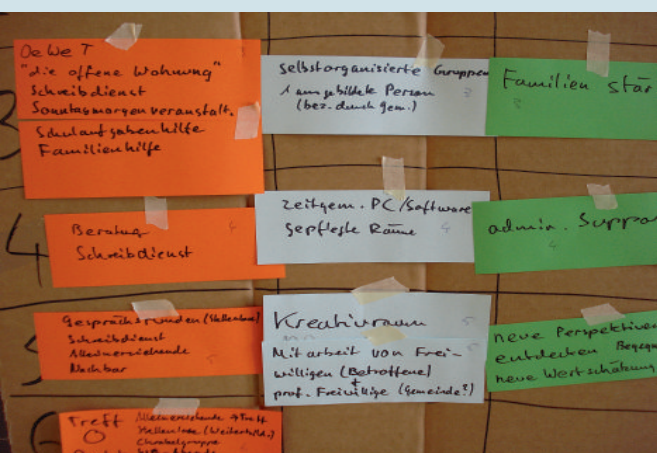 3
OeWe T
"die offene Wohnung"
Schreibdienst
Sonntagmorgenveranstalt.
Schulaufgabenhilfe
Familienhilfe
3
selbstorganisierte Gruppen
1 ausgebildete Person
(bez. durch Gem.)
3
Familien stär
3
4
Beratung
Schreibdienst
4
zeitgem. PC/Software
gepflegte Räume
4
admin. Suppo
4
5
Gesprächsrunden (Stellenlose)
Schreibdienst
Alleinerziehende
Nachbar
5
Kreativraum
5
Mitarbeit von Frei-
willigen (Betroffene)
+
prof. Freiwillige (Gemeinde?)
neue Perspektiven
entdecken Begegn
neue Wertschätzung
6
Treff Alleinerziehende → Treff
Stellenlose (Weiterbild.)
Chrabelgruppe